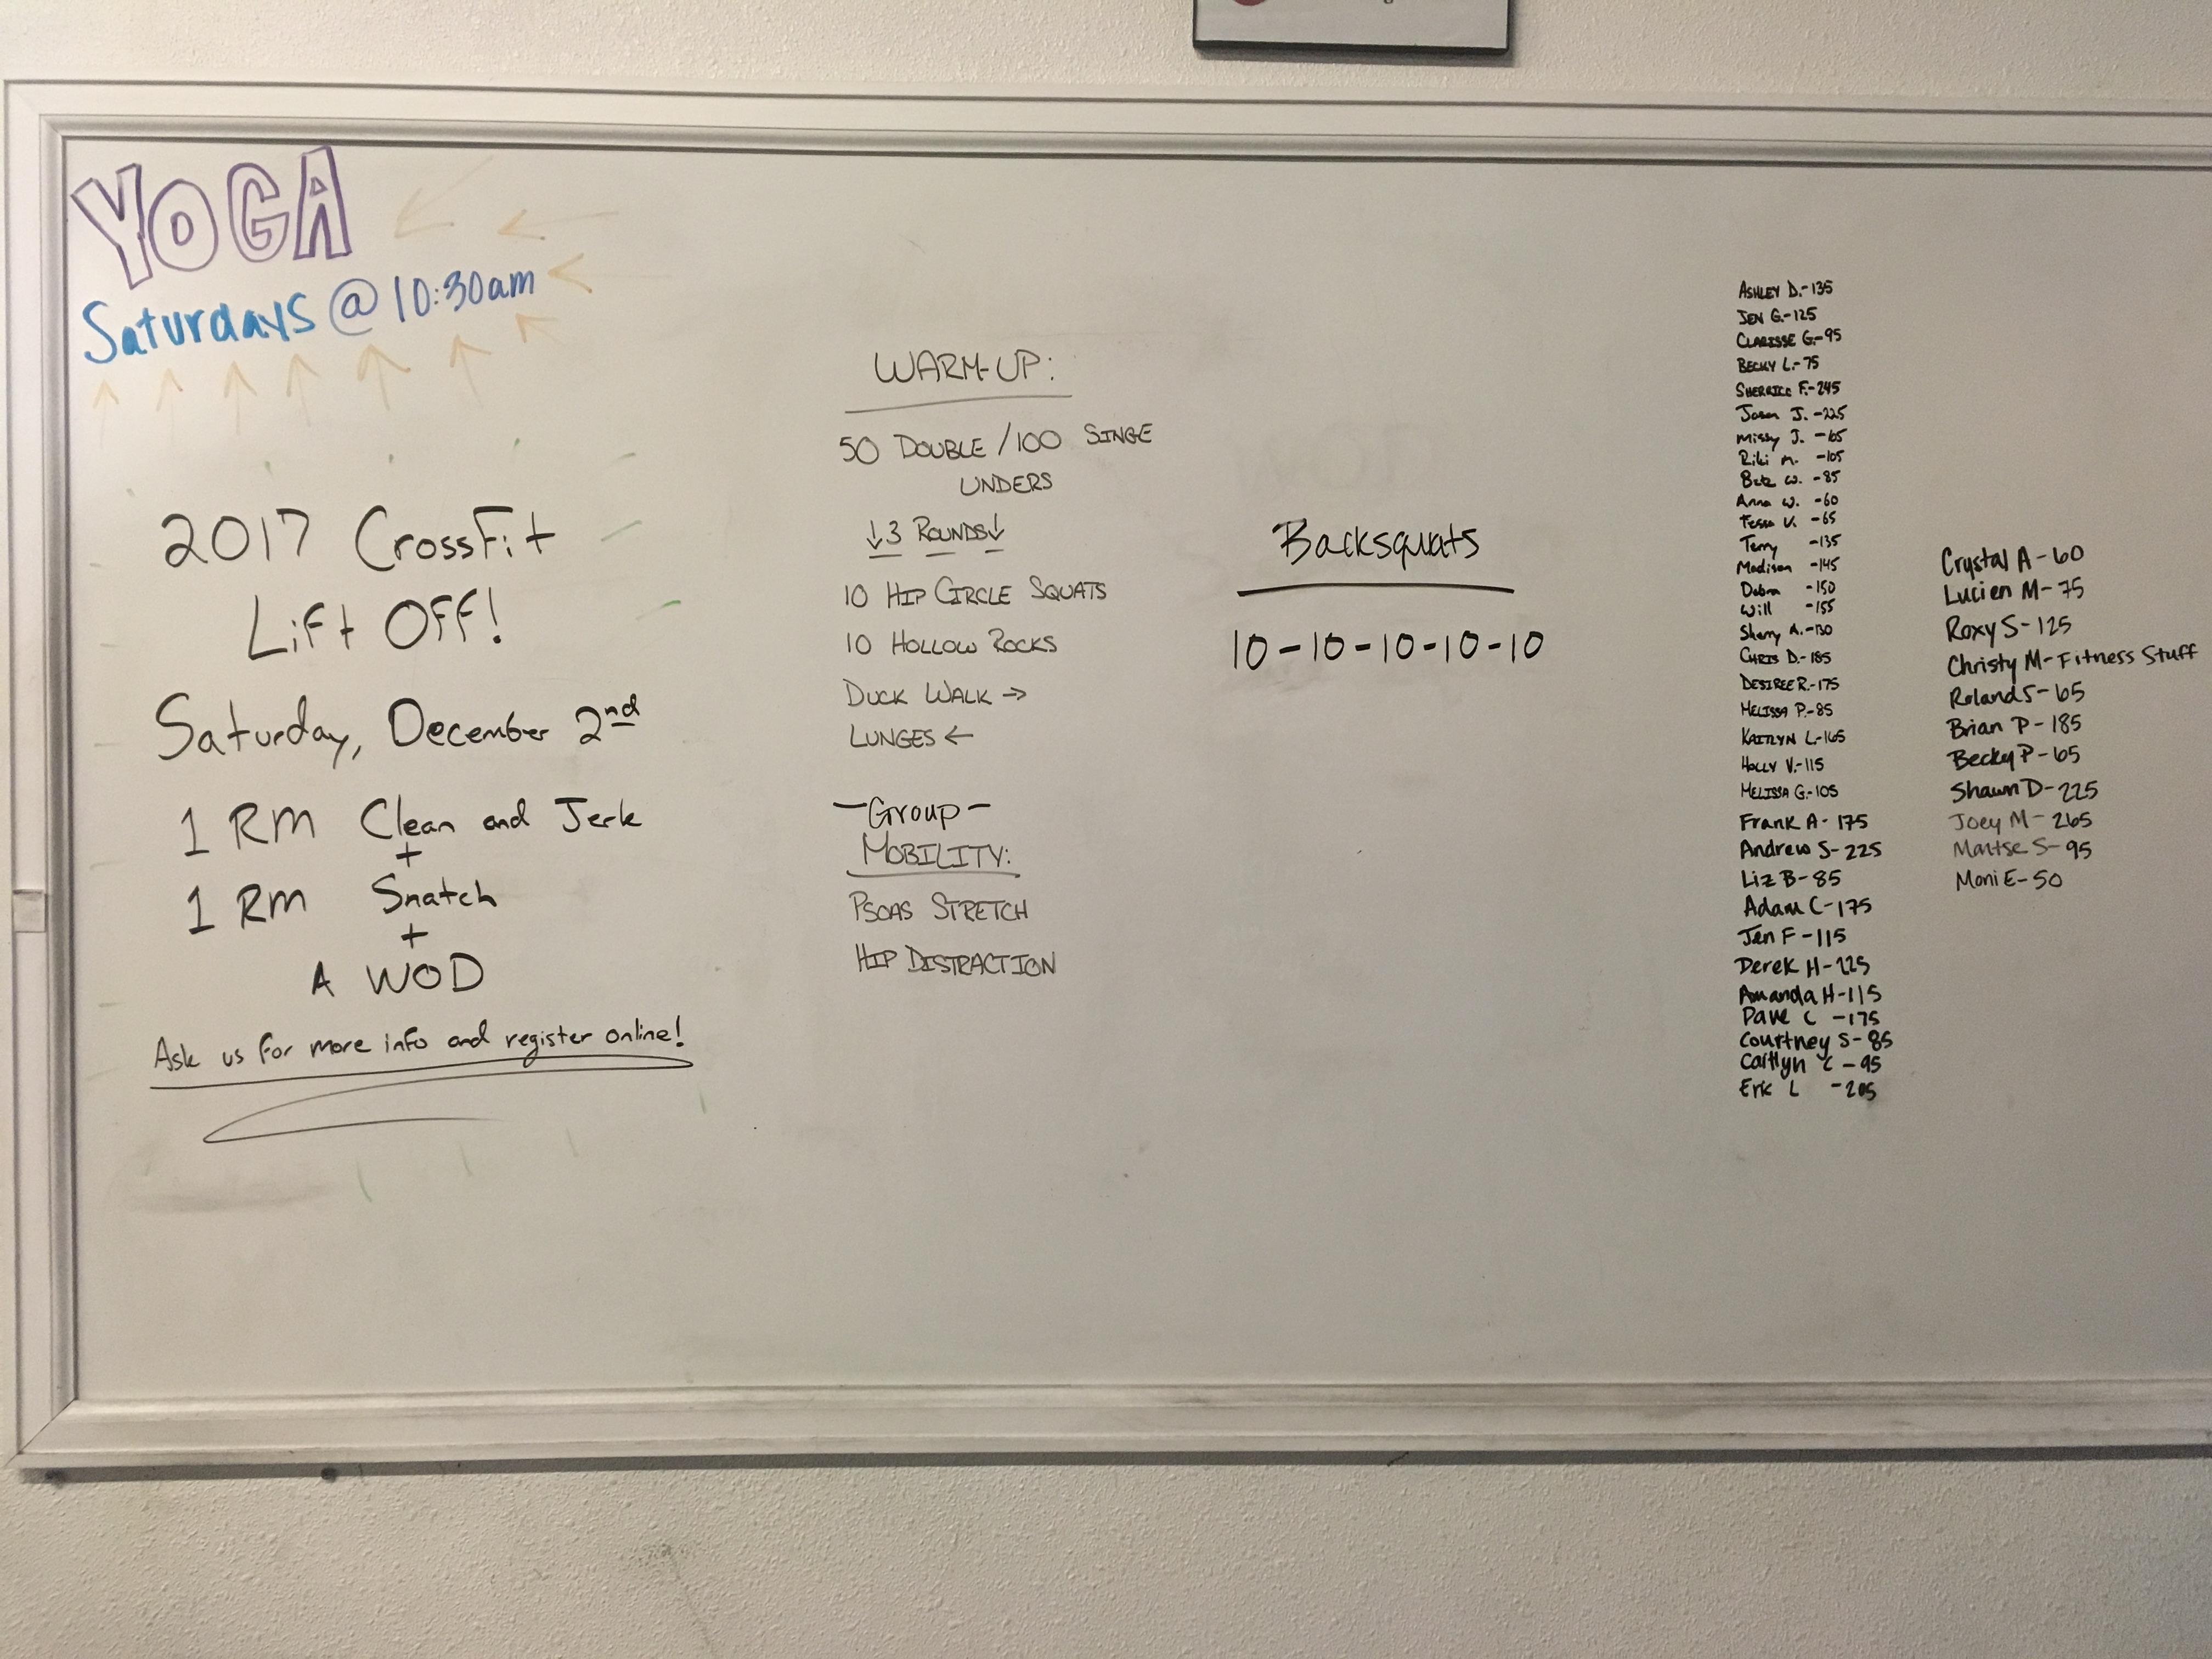 YOGA
Saturdays @ 10:30am
2017 CrossFit
Lift Off!
Saturday, December 2nd
1 RM Clean and Jerk
+
1 RM Snatch
+
A WOD
Ask us for more info and register online!
WARM-UP:
50 DOUBLE /100 SINGE
UNDERS
↓3 ROUNDS↓
10 HIP CIRCLE SQUATS
10 HOLLOW ROCKS
DUCK WALK →
LUNGES ←
-Group-
MOBILITY:
PSOAS STRETCH
HIP DISTRACTION
Backsquats
10-10-10-10-10
ASHLEY D.-135
JEN G.-125
CLARISSE G.-95
BECKY L.-75
F.-245
Jason J. -225
Missy J. -65
Riki M. -105
W. -85
Anna W. -60
Tessa V. -65
Terry -135
Madison -145
Debra -150
Will -155
Sherry A. -130
CHRIS D.-185
DESIREE R.-175
MELISSA P.-85
KAITLYN L.-165
HOLLY V.-115
MELISSA G.-105
Frank A- 175
Andrew S- 225
Liz B- 85
Adam C-175
Jen F -115
Derek H-225
Amanda H-115
Dave C -175
Courtney S- 85
Caitlyn C -95
Eric L -205
Crystal A - 60
Lucien M- 75
Roxy S- 125
Christy M- Fitness Stuff
Roland S- 65
Brian P - 185
Becky P- 65
Shawn D- 225
Joey M- 265
S- 95
Moni E- 50